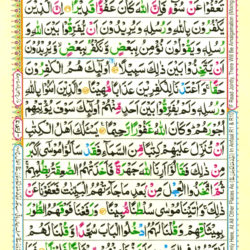 تَعْفُوْا عَنْ سُوْٓءٍ فَاِنَّ اللّٰهَ كَانَ عَفُوًّا قَدِيْرًا اِنَّ الَّذِيْنَ
يَكْفُرُوْنَ بِاللّٰهِ وَرُسُلِهٖ وَيُرِيْدُوْنَ اَنْ يُّفَرِّقُوْا بَيْنَ اللّٰهِ
وَرُسُلِهٖ وَيَقُوْلُوْنَ نُؤْمِنُ بِبَعْضٍ وَّنَكْفُرُ بِبَعْضٍ وَّيُرِيْدُوْنَ
اَنْ يَّتَّخِذُوْا بَيْنَ ذٰلِكَ سَبِيْلًا اُولٰٓئِكَ هُمُ الْكٰفِرُوْنَ
حَقًّا وَاَعْتَدْنَا لِلْكٰفِرِيْنَ عَذَابًا مُّهِيْنًا وَالَّذِيْنَ اٰمَنُوْا بِاللّٰهِ
وَرُسُلِهٖ وَلَمْ يُفَرِّقُوْا بَيْنَ اَحَدٍ مِّنْهُمْ اُولٰٓئِكَ سَوْفَ يُؤْتِيْهِمْ
اُجُوْرَهُمْ وَكَانَ اللّٰهُ غَفُوْرًا رَّحِيْمًا يَسْـَٔلُكَ اَهْلُ الْكِتٰبِ
اَنْ تُنَزِّلَ عَلَيْهِمْ كِتٰبًا مِّنَ السَّمَآءِ فَقَدْ سَاَلُوْا مُوْسٰٓى اَكْبَرَ
مِنْ ذٰلِكَ فَقَالُوْٓا اَرِنَا اللّٰهَ جَهْرَةً فَاَخَذَتْهُمُ الصّٰعِقَةُ بِظُلْمِهِمْ
ثُمَّ اتَّخَذُوا الْعِجْلَ مِنْ بَعْدِ مَا جَآءَتْهُمُ الْبَيِّنٰتُ فَعَفَوْنَا عَنْ
ذٰلِكَ وَاٰتَيْنَا مُوْسٰى سُلْطٰنًا مُّبِيْنًا وَرَفَعْنَا فَوْقَهُمُ الطُّوْرَ
بِمِيْثَاقِهِمْ وَقُلْنَا لَهُمُ ادْخُلُوا الْبَابَ سُجَّدًا وَّقُلْنَا لَهُمْ